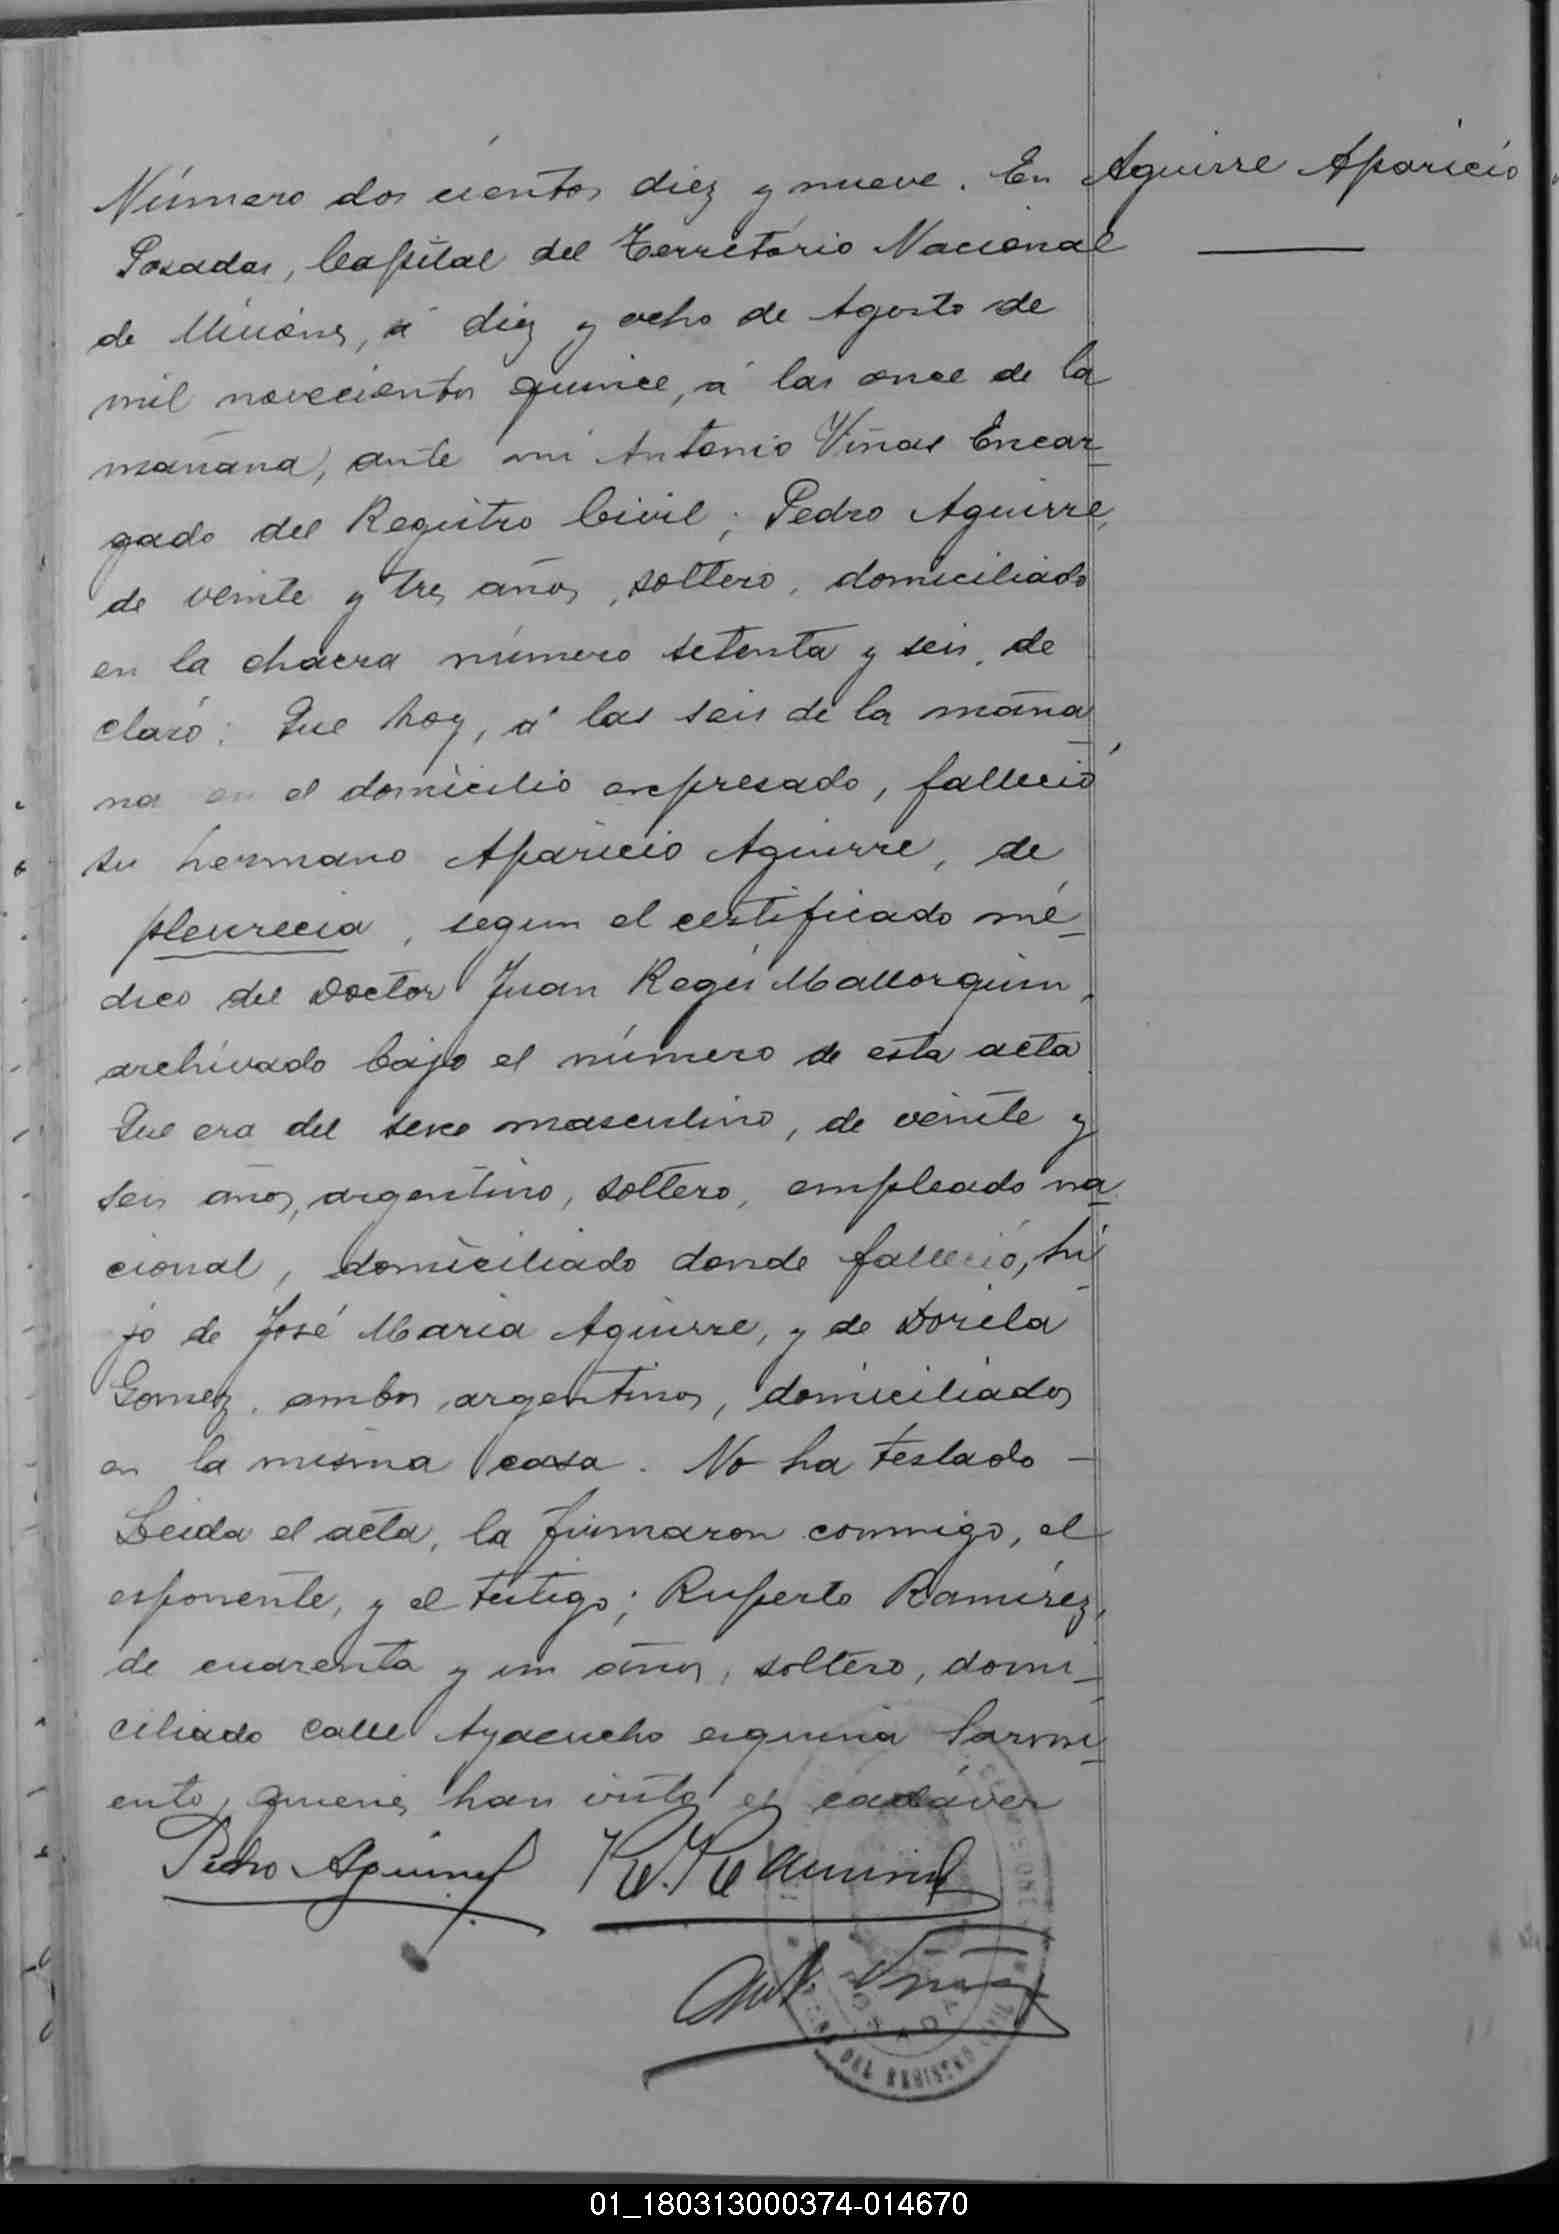 Número dos cientos diez y nueve. En
Aguirre Aparicio
Posadas, Capital del Territorio Nacional
de Misiones, á diez y ocho de Agosto de
mil novecientos quince, á las once de la
mañana, ante mi Antonio Viñas Encar-
gado del Registro Civil; Pedro Aguirre,
de veinte y tres años, soltero, domiciliado
en la chacra número setenta y seis, de
claró: Que hoy, á las seis de la maña
na en el domicilio expresado, falleció
su hermano Aparicio Aguirre, de
pleurecia, segun el certificado mé-
dico del Doctor Juan Regis Mallorquin,
archivado bajo el número de esta acta
Que era del sexo masculino, de veinte y
seis años, argentino, soltero, empleado na-
cional, domiciliado donde falleció, hi-
jo de José Maria Aguirre, y de Dorila
Gomez, ambos argentinos, domiciliados
en la misma casa. No ha testado —
Leida el acta, la firmaron conmigo, el
esponente, y el testigo; Ruperto Ramírez,
de cuarenta y un años, soltero, domi-
ciliado calle Ayacucho esquina Sarmi-
ento, quienes han visto el cadáver
Pedro Aguirre R. Ramirez
Ant. Viñas
POSADAS
01_180313000374-014670